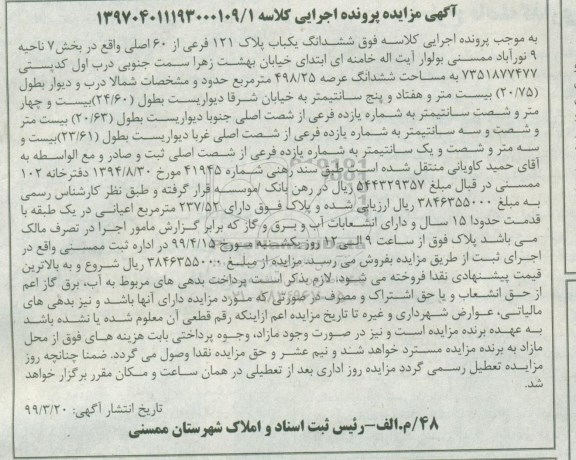 آگهی مزایده پرونده اجرایی کلاسه ۱۳۹۷۰۴۰۱۱۱۹۳۰۰۰۱۰۹/۱
به موجب پرونده اجرایی کلاسه فوق ششدانگ یکباب پلاک ۱۲۱ فرعی از ۶۰ اصلی واقع در بخش۷ ناحیه
۹ نورآباد ممسنی بولوار آیت اله خامنه ای ابتدای خیابان بهشت زهرا سمت جنوبی درب اول کدپستی
۷۳۵۱۸۷۷۴۷۷ به مساحت ششدانگ عرصه ۴۹۸/۲۵ مترمربع حدود و مشخصات شمالا درب و دیوار بطول
(۲۰/۷۵) بیست متر و هفتاد و پنج سانتیمتر به خیابان شرقا دیواریست بطول (۲۴/۶۰)بیست و چهار
متر و شصت سانتیمتر به شماره یازده فرعی از شصت اصلی جنوبا دیواریست بطول (۲۰/۶۳) بیست متر
و شصت و سه سانتیمتر به شماره یازده فرعی از شصت اصلی غربا دیواریست بطول (۲۳/۶۱)بیست و
سه متر و شصت و یک سانتیمتر به شماره یازده فرعی از شصت اصلی ثبت و صادر و مع الواسطه به
آقای حمید کاویانی منتقل شده است طبق سند رهنی شماره ۴۱۹۴۵ مورخ ۱۳۹۴/۸/۳۰ دفترخانه ۱۰۲
ممسنی در قبال مبلغ ۵۴۴۳۲۹۳۵۷ ریال در رهن بانک /موسسه قرار گرفته و طبق نظر کارشناس رسمی
به مبلغ ۳۸۴۶۳۵۵۰۰۰ ریال ارزیابی شده و پلاک فوق دارای ۲۳۷/۵۲ مترمربع اعیانی در یک طبقه با
قدمت حدودا ۱۵ سال و دارای انشعابات آب و برق و گاز که برابر گزارش مامور اجرا در تصرف مالک
می باشد پلاک فوق از ساعت ۹ الی ۱۲ روز یکشنبه مورخ ۹۹/۴/۱۵ در اداره ثبت ممسنی واقع در
اجرای ثبت از طریق مزایده بفروش می رسد. مزایده از مبلغ ۳۸۴۶۳۵۵۰۰۰ ریال شروع و به بالاترین
قیمت پیشنهادی نقدا فروخته می شود، لازم بذکر است پرداخت بدهی های مربوط به آب، برق گاز اعم
از حق انشعاب و یا حق اشتراک و مصرف در صورتی که مورد مزایده دارای آنها باشد و نیز بدهی های
مالیاتی، عوارض شهرداری و غیره تا تاریخ مزایده اعم ازاینکه رقم قطعی آن معلوم شده یا نشده باشد
به عهده برنده مزایده است و نیز در صورت وجود مازاد، وجوه پرداختی بابت هزینه های فوق از محل
مازاد به برنده مزایده مسترد خواهد شد و نیم عشر و حق مزایده نقدا وصول می گردد. ضمنا چنانچه روز
مزایده تعطیل رسمی گردد مزایده روز اداری بعد از تعطیلی در همان ساعت و مکان مقرر برگزار خواهد
شد.
تاریخ انتشار آگهی: ۹۹/۳/۲۰
۴۸/م.الف-رئیس ثبت اسناد و املاک شهرستان ممسنی